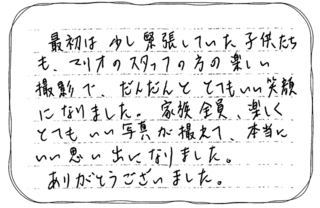 最初は少し緊張していた子供たち
も、マリオのスタッフの方の楽しい
撮影で、だんだんと とてもいい笑顔
になりました。家族全員、楽しく
とてもいい写真が撮えて、本当に
いい思い出になりました。
ありがとうございました。